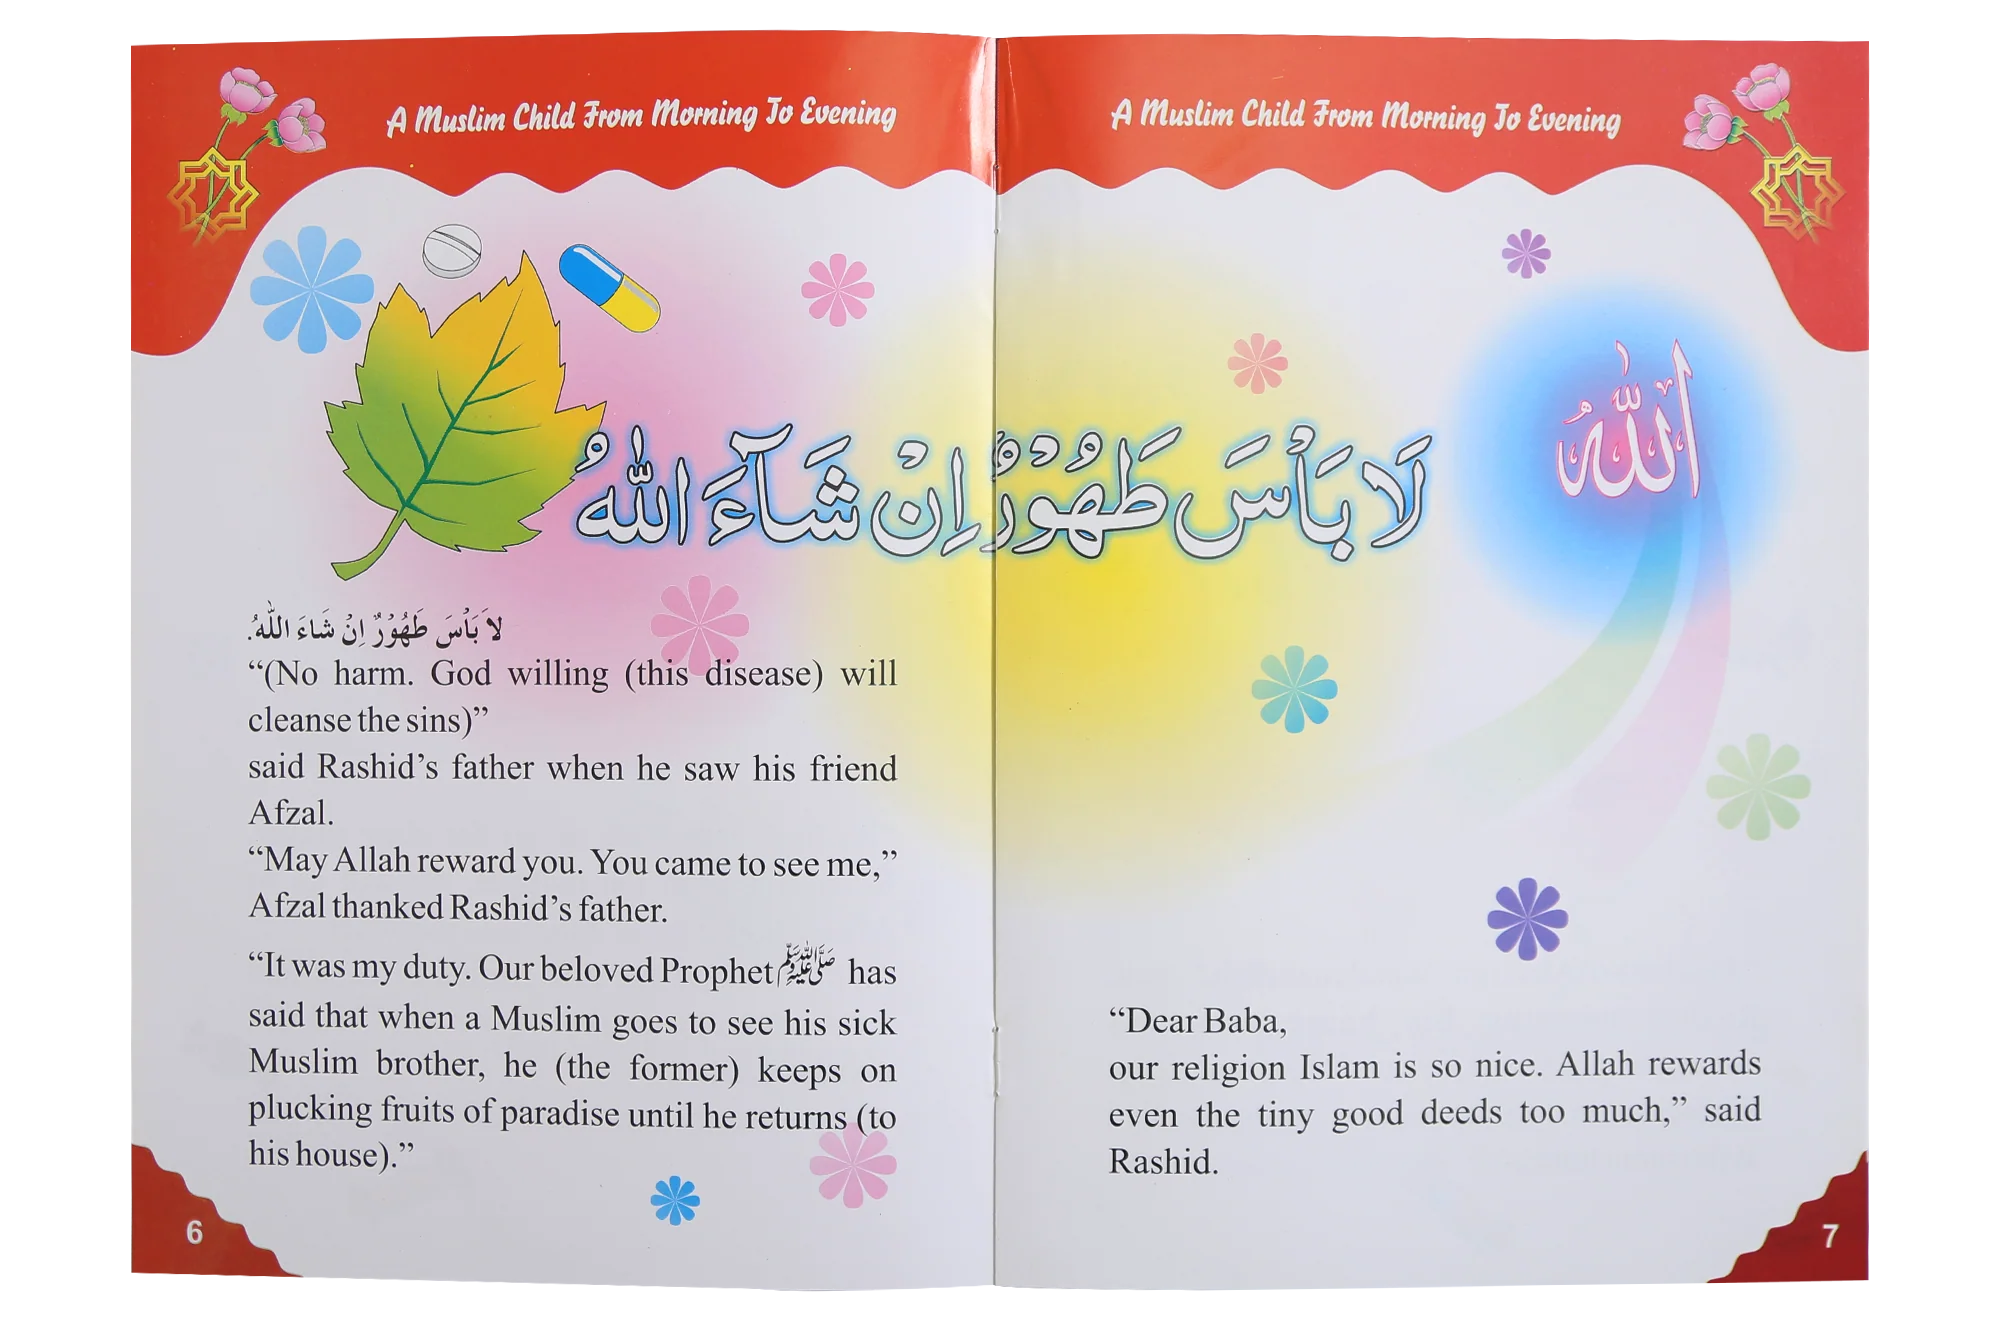 A Muslim Child From Morning To Evening
A Muslim Child From Morning To Evening
اللهُ
لَا بَأْسَ طَهُوْرٌ اِنْ شَآءَ اللهُ
لاَ بَأْسَ طَهُوْرٌ اِنْ شَاءَ اللّٰهُ.
“(No harm. God willing (this disease) will
cleanse the sins)”
said Rashid’s father when he saw his friend
Afzal.
“May Allah reward you. You came to see me,”
Afzal thanked Rashid’s father.
“It was my duty. Our beloved Prophet ﷺ has
said that when a Muslim goes to see his sick
Muslim brother, he (the former) keeps on
plucking fruits of paradise until he returns (to
his house).”
6
“Dear Baba,
our religion Islam is so nice. Allah rewards
even the tiny good deeds too much,” said
Rashid.
7